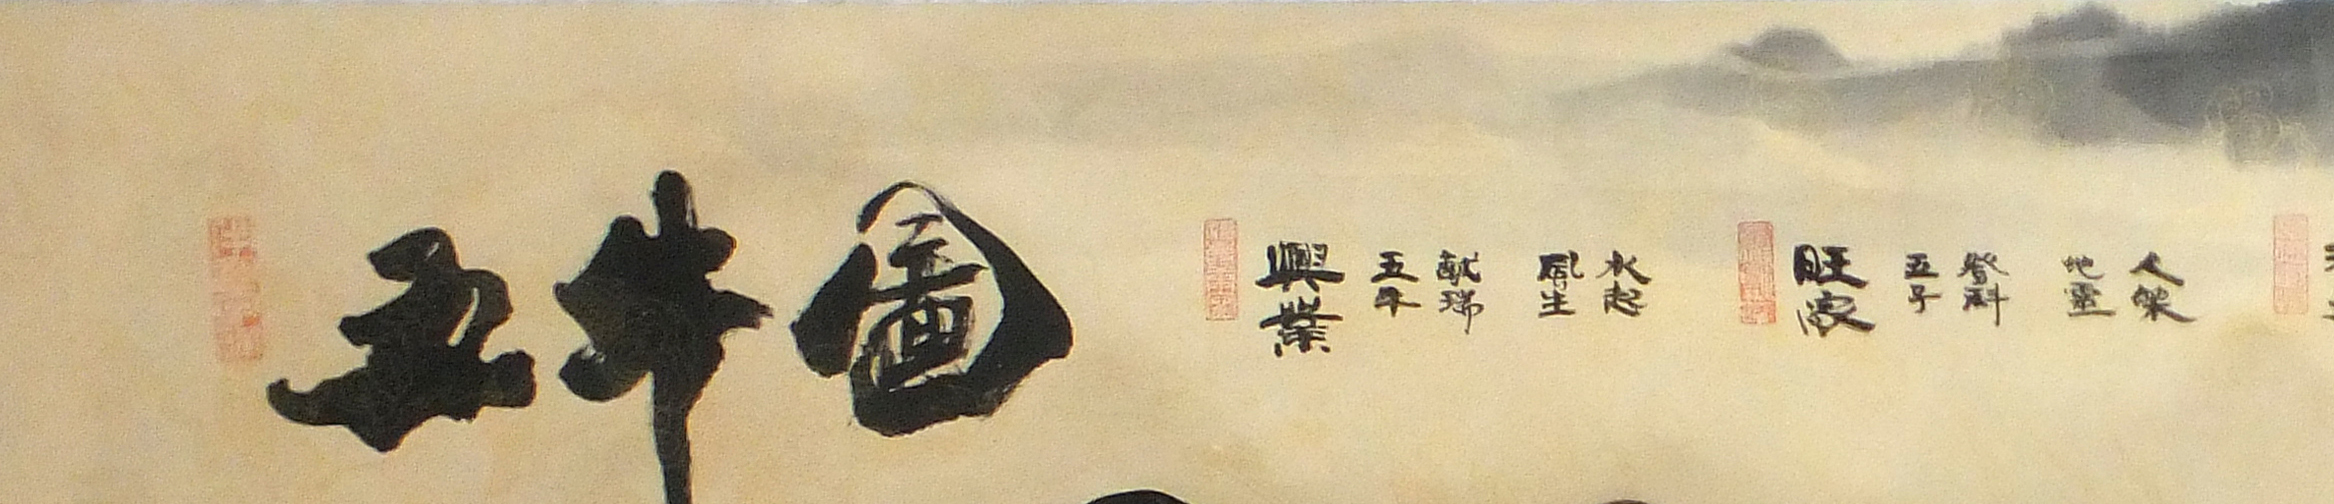 五牛圖
興業
五牛
献瑞
風生
水起
旺家
五子
登科
地靈
人傑